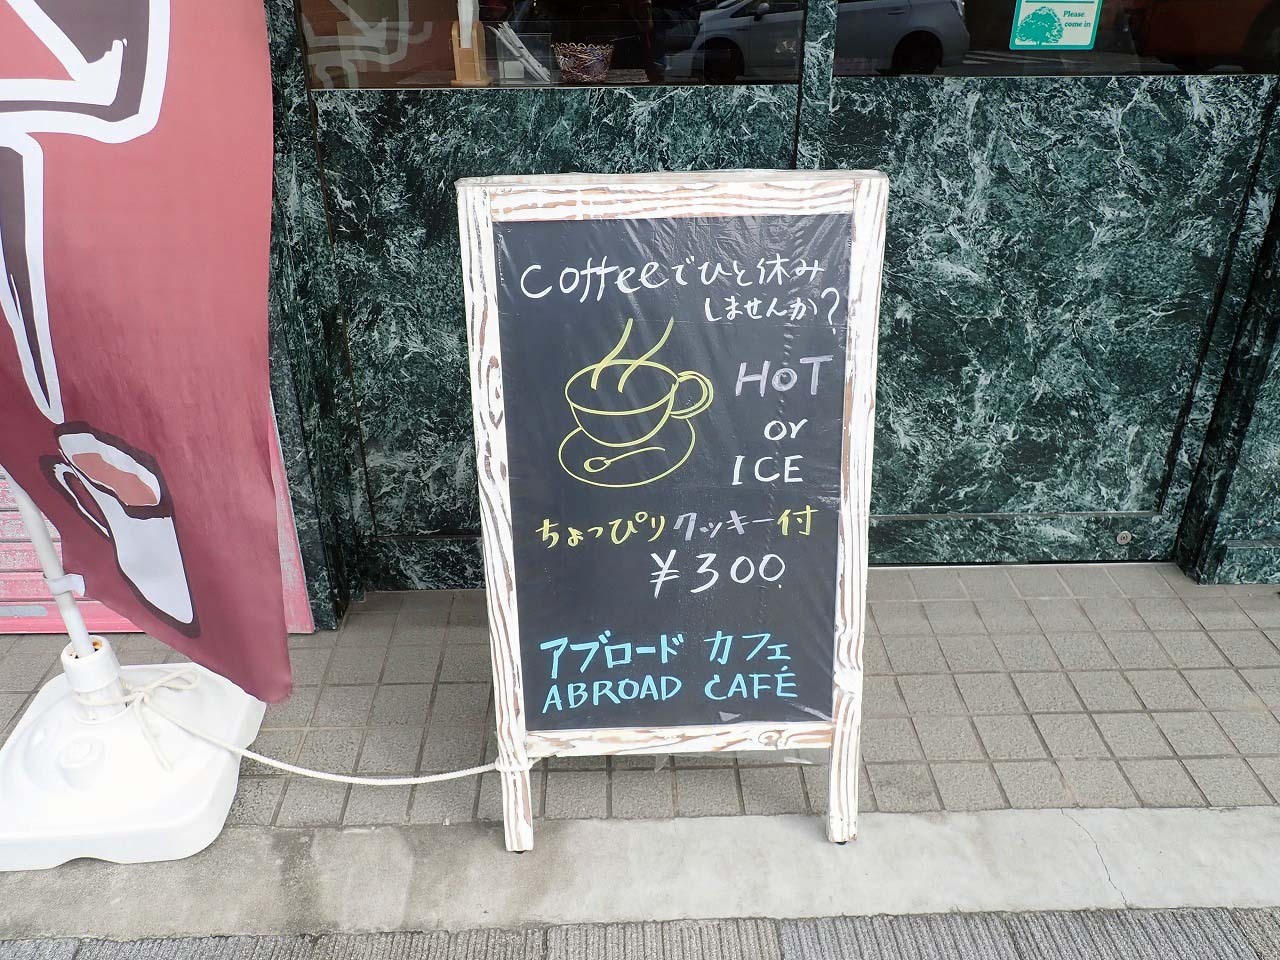 Please
come in
coffeeでひと休み
しませんか?
HOT
or
ICE
ちょっぴりクッキー付
¥300
アブロード カフェ
ABROAD CAFÉ